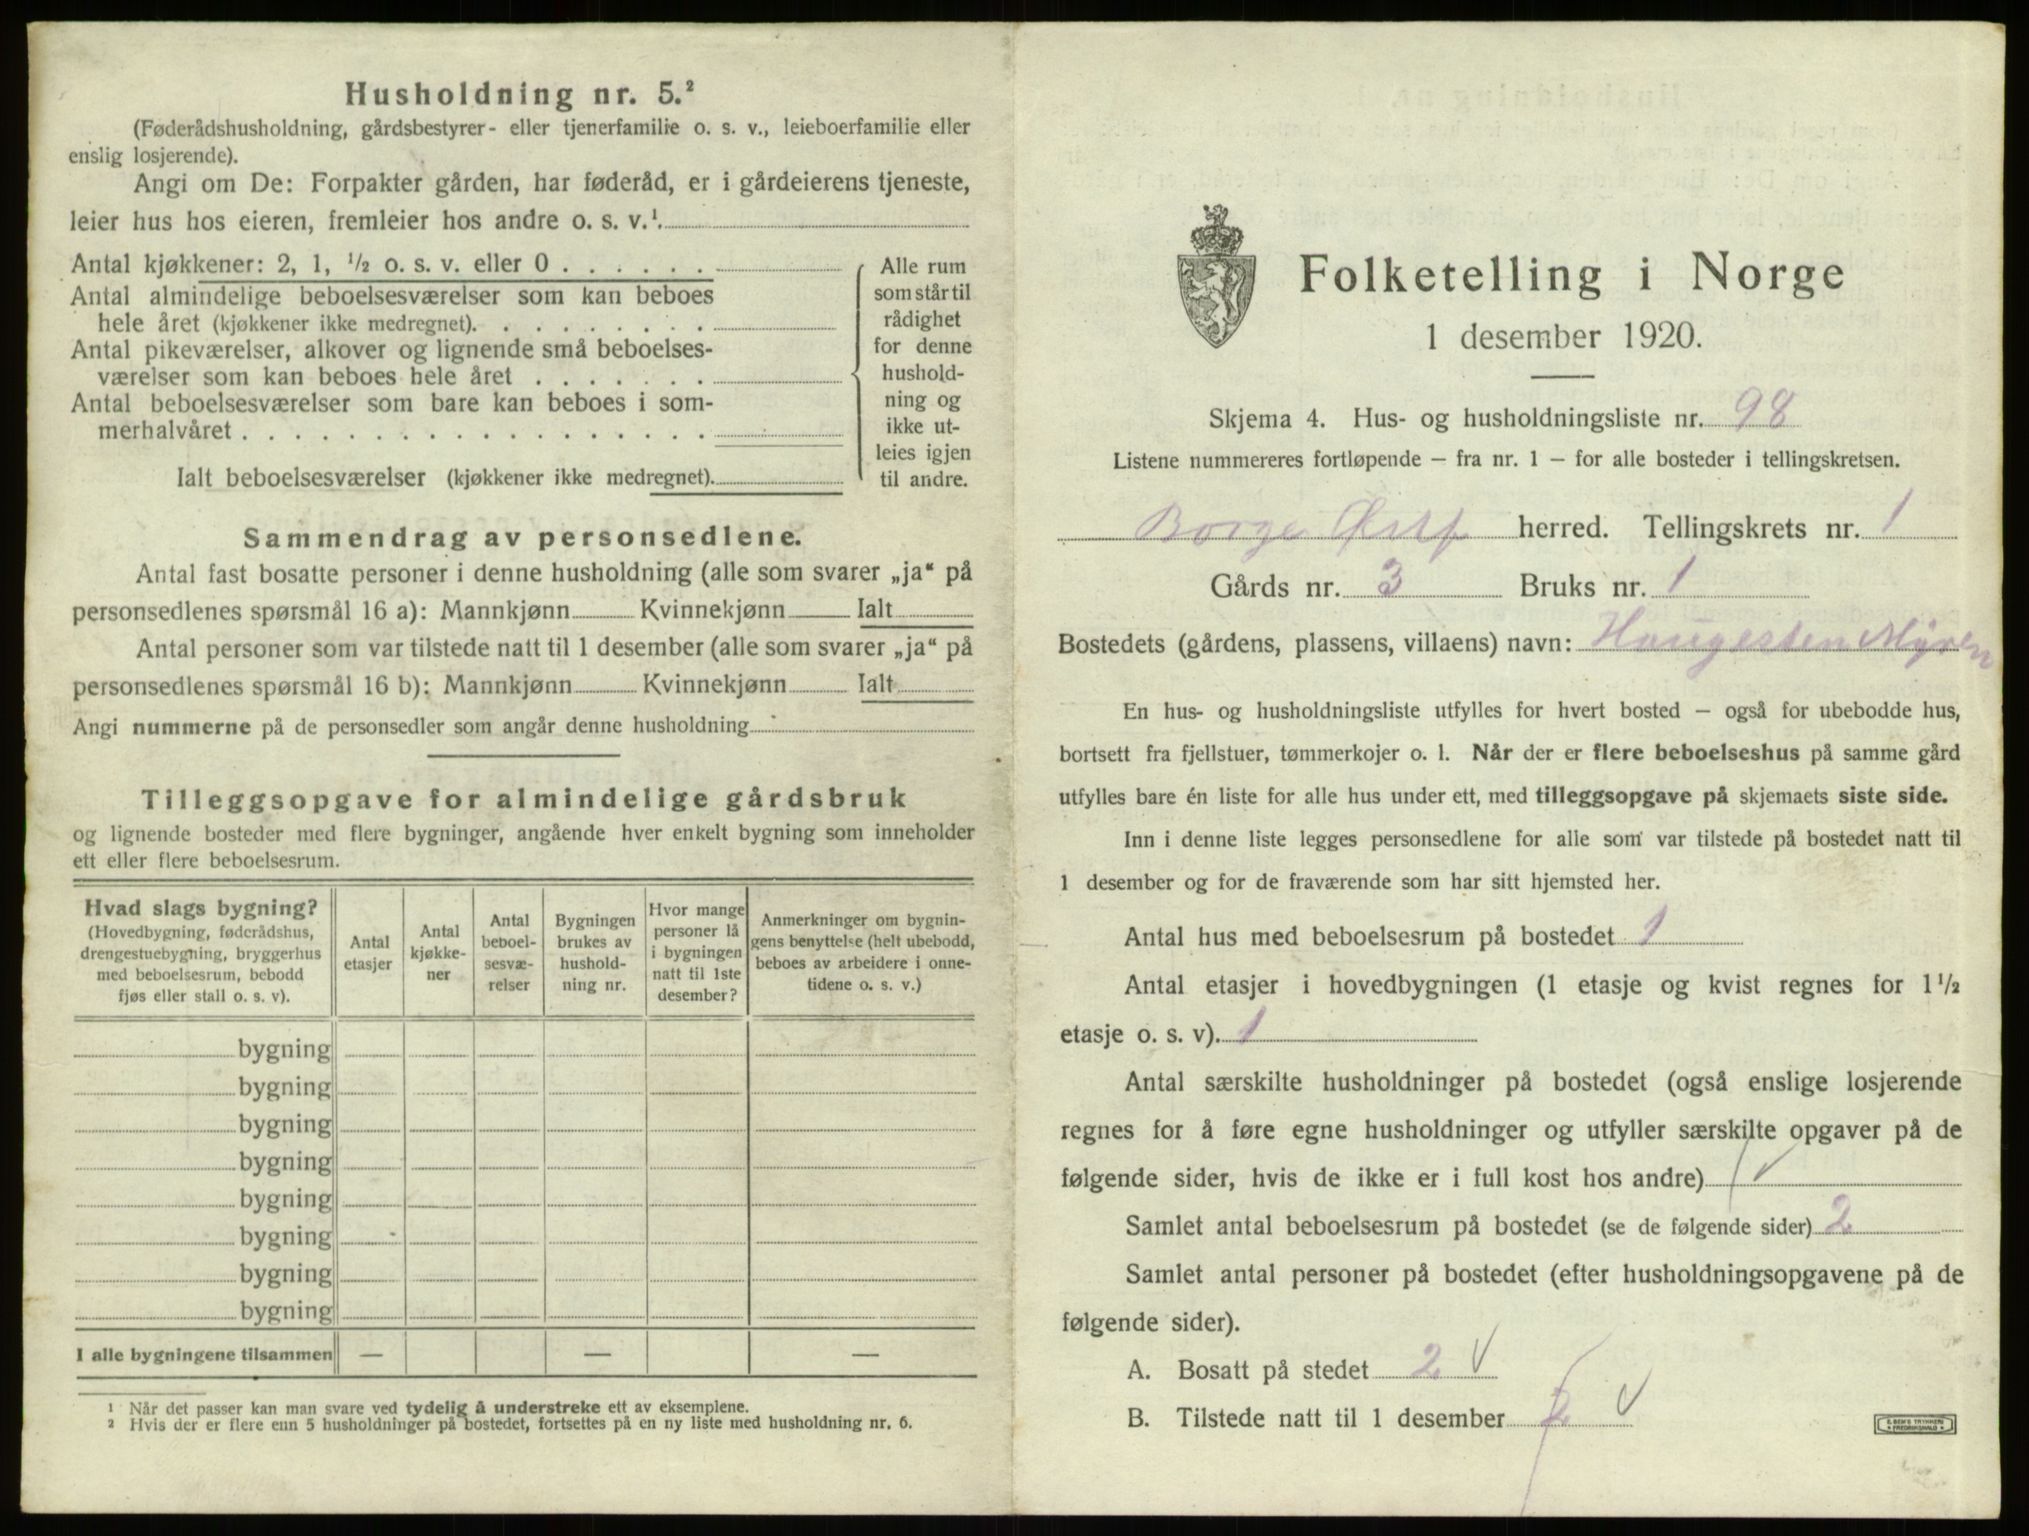 Husholdning nr. 5.²
(Føderådshusholdning, gårdsbestyrer- eller tjenerfamilie o. s. v., leieboerfamilie eller
enslig losjerende).
Angi om De: Forpakter gården, har føderåd, er i gårdeierens tjeneste,
leier hus hos eieren, fremleier hos andre o. s. v.¹
Antal kjøkkener: 2, 1, ½ o. s. v. eller 0 . . . . . .
Antal almindelige beboelsesværelser som kan beboes
hele året (kjøkkener ikke medregnet). . . . . . . . .
Antal pikeværelser, alkover og lignende små beboelses-
værelser som kan beboes hele året . . . . . . .
Antal beboelsesværelser som bare kan beboes i som-
merhalvåret . . . . . . . . . . . . . . . . . .
Ialt beboelsesværelser (kjøkkener ikke medregnet).
Alle rum
som står til
rådighet
for denne
hushold-
ning og
ikke ut-
leies igjen
til andre.
Sammendrag av personsedlene.
Antal fast bosatte personer i denne husholdning (alle som svarer „ja“ på
personsedlenes spørsmål 16 a): Mannkjønn Kvinnekjønn Ialt
Antal personer som var tilstede natt til 1 desember (alle som svarer „ja“ på
personsedlenes spørsmål 16 b): Mannkjønn Kvinnekjønn Ialt
Angi nummerne på de personsedler som angår denne husholdning
Tilleggsopgave for almindelige gårdsbruk
og lignende bosteder med flere bygninger, angående hver enkelt bygning som inneholder
ett eller flere beboelsesrum.
Hvad slags bygning?
(Hovedbygning, føderådshus,
drengestuebygning, bryggerhus
med beboelsesrum, bebodd
fjøs eller stall o. s. v).
Antal
etasjer
Antal
kjøkke-
ner
Antal
beboel-
sesvæ-
relser
Bygningen
brukes av
hushold-
ning nr.
Hvor mange
personer lå
i bygningen
natt til 1ste
desember?
Anmerkninger om bygnin-
gens benyttelse (helt ubebodd,
beboes av arbeidere i onne-
tidene o. s. v.)
bygning
bygning
bygning
bygning
bygning
bygning
bygning
bygning
I alle bygningene tilsammen — — —
¹ Når det passer kan man svare ved tydelig å understreke ett av eksemplene.
² Hvis der er flere enn 5 husholdninger på bostedet, fortsettes på en ny liste med husholdning nr. 6.
Folketelling i Norge
1 desember 1920.
Skjema 4. Hus- og husholdningsliste nr. 98
Listene nummereres fortløpende – fra nr. 1 – for alle bosteder i tellingskretsen.
Borge Østf herred. Tellingskrets nr. 1
Gårds nr. 3 Bruks nr. 1
Bostedets (gårdens, plassens, villaens) navn: Haugesten Myren
En hus- og husholdningsliste utfylles for hvert bosted – også for ubebodde hus,
bortsett fra fjellstuer, tømmerkojer o. l. Når der er flere beboelseshus på samme gård
utfylles bare én liste for alle hus under ett, med tilleggsopgave på skjemaets siste side.
Inn i denne liste legges personsedlene for alle som var tilstede på bostedet natt til
1 desember og for de fraværende som har sitt hjemsted her.
Antal hus med beboelsesrum på bostedet 1
Antal etasjer i hovedbygningen (1 etasje og kvist regnes for 1½
etasje o. s. v). 1
Antal særskilte husholdninger på bostedet (også enslige losjerende
regnes for å føre egne husholdninger og utfyller særskilte opgaver på de
følgende sider, hvis de ikke er i full kost hos andre) 1
Samlet antal beboelsesrum på bostedet (se de følgende sider) 2
Samlet antal personer på bostedet (efter husholdningsopgavene på de
følgende sider).
A. Bosatt på stedet 2
B. Tilstede natt til 1 desember 2